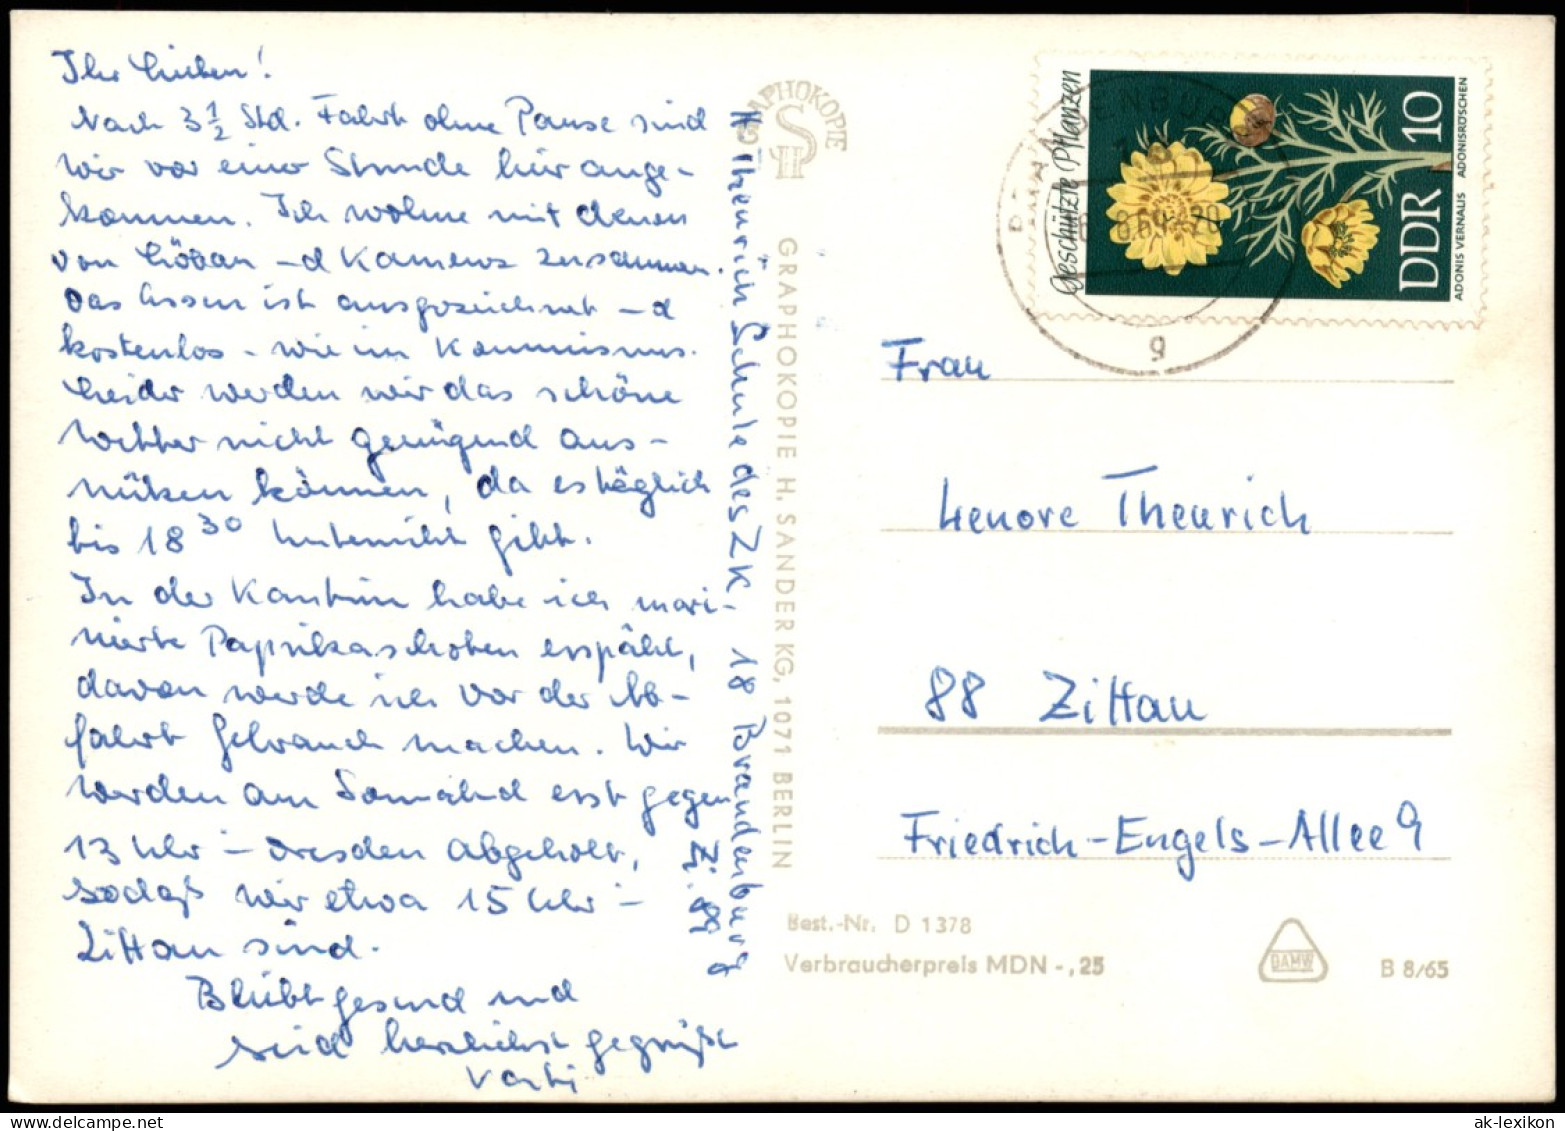 Ihr Lieben!
Nach 3 ½ Std. Fahrt ohne Pause sind
wir vor einer Stunde hier ange-
kommen. Ich wohne mit denen
von Löbau u-d Kamenz zusammen.
Das Essen ist ausgezeichnet u-d
kostenlos - wie im Kommunismus.
Leider werden wir das schöne
Wetter nicht genügend aus-
nützen können, da es täglich
bis 18 30 Unterricht gibt.
In der Kantine habe ich mari-
nierte Paprikaschoten erspäht,
davon werde ich vor der Ab-
fahrt Gebrauch machen. Wir
werden am Sonnabend erst gegen
13 Uhr i- Dresden abgeholt,
sodaß wir etwa 15 Uhr i-
Zittau sind.
Bleibt gesund und
seid herzlichst gegrüßt
Vati
H. Theurich Schule des ZK 18 Brandenburg
GRAPHOKOPIE
H S
GRAPHOKOPIE H. SANDER KG, 1071 BERLIN
Geschützte Pflanzen
DDR 10
ADONIS VERNALIS ADONISRÖSCHEN
g
Frau
Lenore Theurich
88 Zittau
Friedrich-Engels-Allee 9
Best.-Nr. D 1378
Verbraucherpreis MDN -,25
DAMW
B 8/65
ak-lexikon